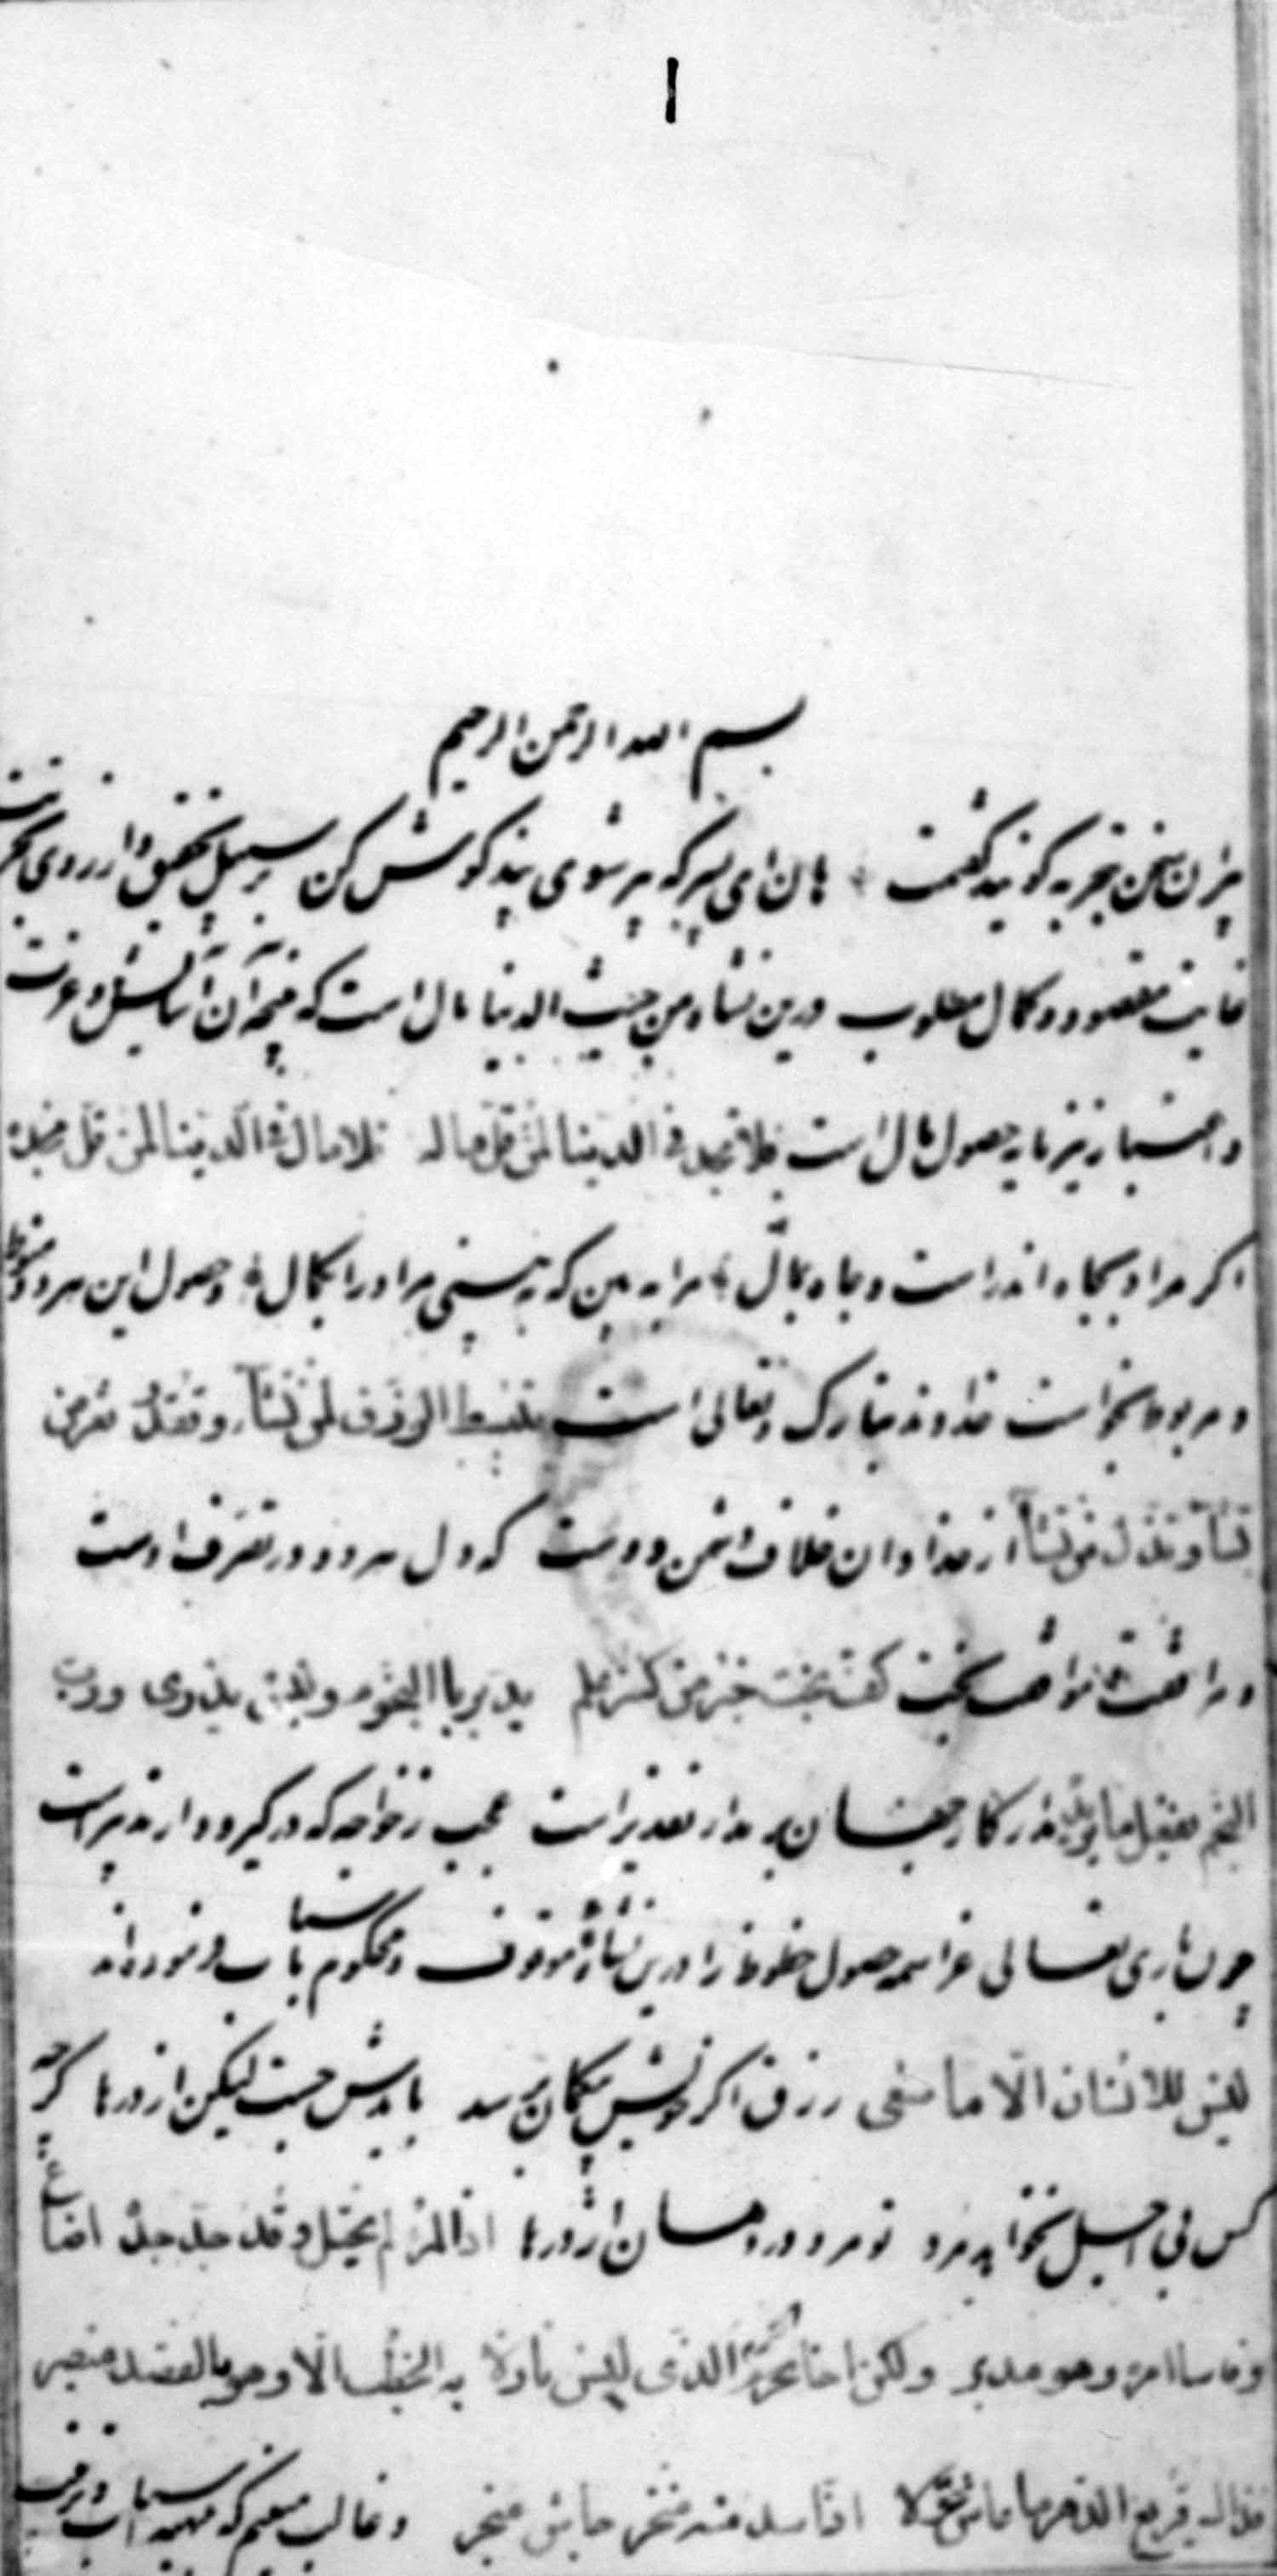 ۱
بسم الله الرحمن الرحیم
پیران سخن بتجربه گویند گفتمت هان ای پسر که پیر شوی پند گوش کن بر سبیل تحقیق و از روی
غایت مقصود و کمال مطلوب درین نشاه من حیث الدنیا مال است که نتیجه آن آسایش و عزت
و اعتبار نیز مایه حصول مال است فلا مجد فی الدنیا لمن قل ماله فلا مال فی الدنیا لمن قل مجده
اگر مراد بجاه اندر است و جاه بمال مرا ببین که ببینی مراد را بکمال و حصول این هر دو منوط
و مربوط بخواست خداوند تبارک و تعالی است یبسط الرزق لمن یشاء و تعز من
تشاء و تذل من تشاء از خدا دان خلاف دشمن و دوست که دل هر دو در تصرف اوست
و موافقت بخت کف بخت خیر من کر علم یدبر بالنجوم و لیس یدری و رب
النجم یفعل ما یرید مدار کار جهان بر مدار تقدیر است عجب ز خواجه که در گیر و دار تدبیر است
چون باری تعالی عز اسمه حصول حظوظ را درین نشاه موقوف و محکوم باسباب فرموده اند
لیس للانسان الا ما سعی رزق اگر چند بیگمان برسد باید بشرط جست لیکن از درها گرچه
کس بی اجل نخواهد مرد تو مرو در دهان اژدرها اذا المرء لم یحتل و قد جد جده اضاع
و قاسا امره و هو مدبر ولکن اخا الحزم الذی لیس نازلا به الخطب الا و هو بالقصد مبصر
فذاک قریع الدهر ما عاش حول اذا سد منه منخر جاش منخر و غالب